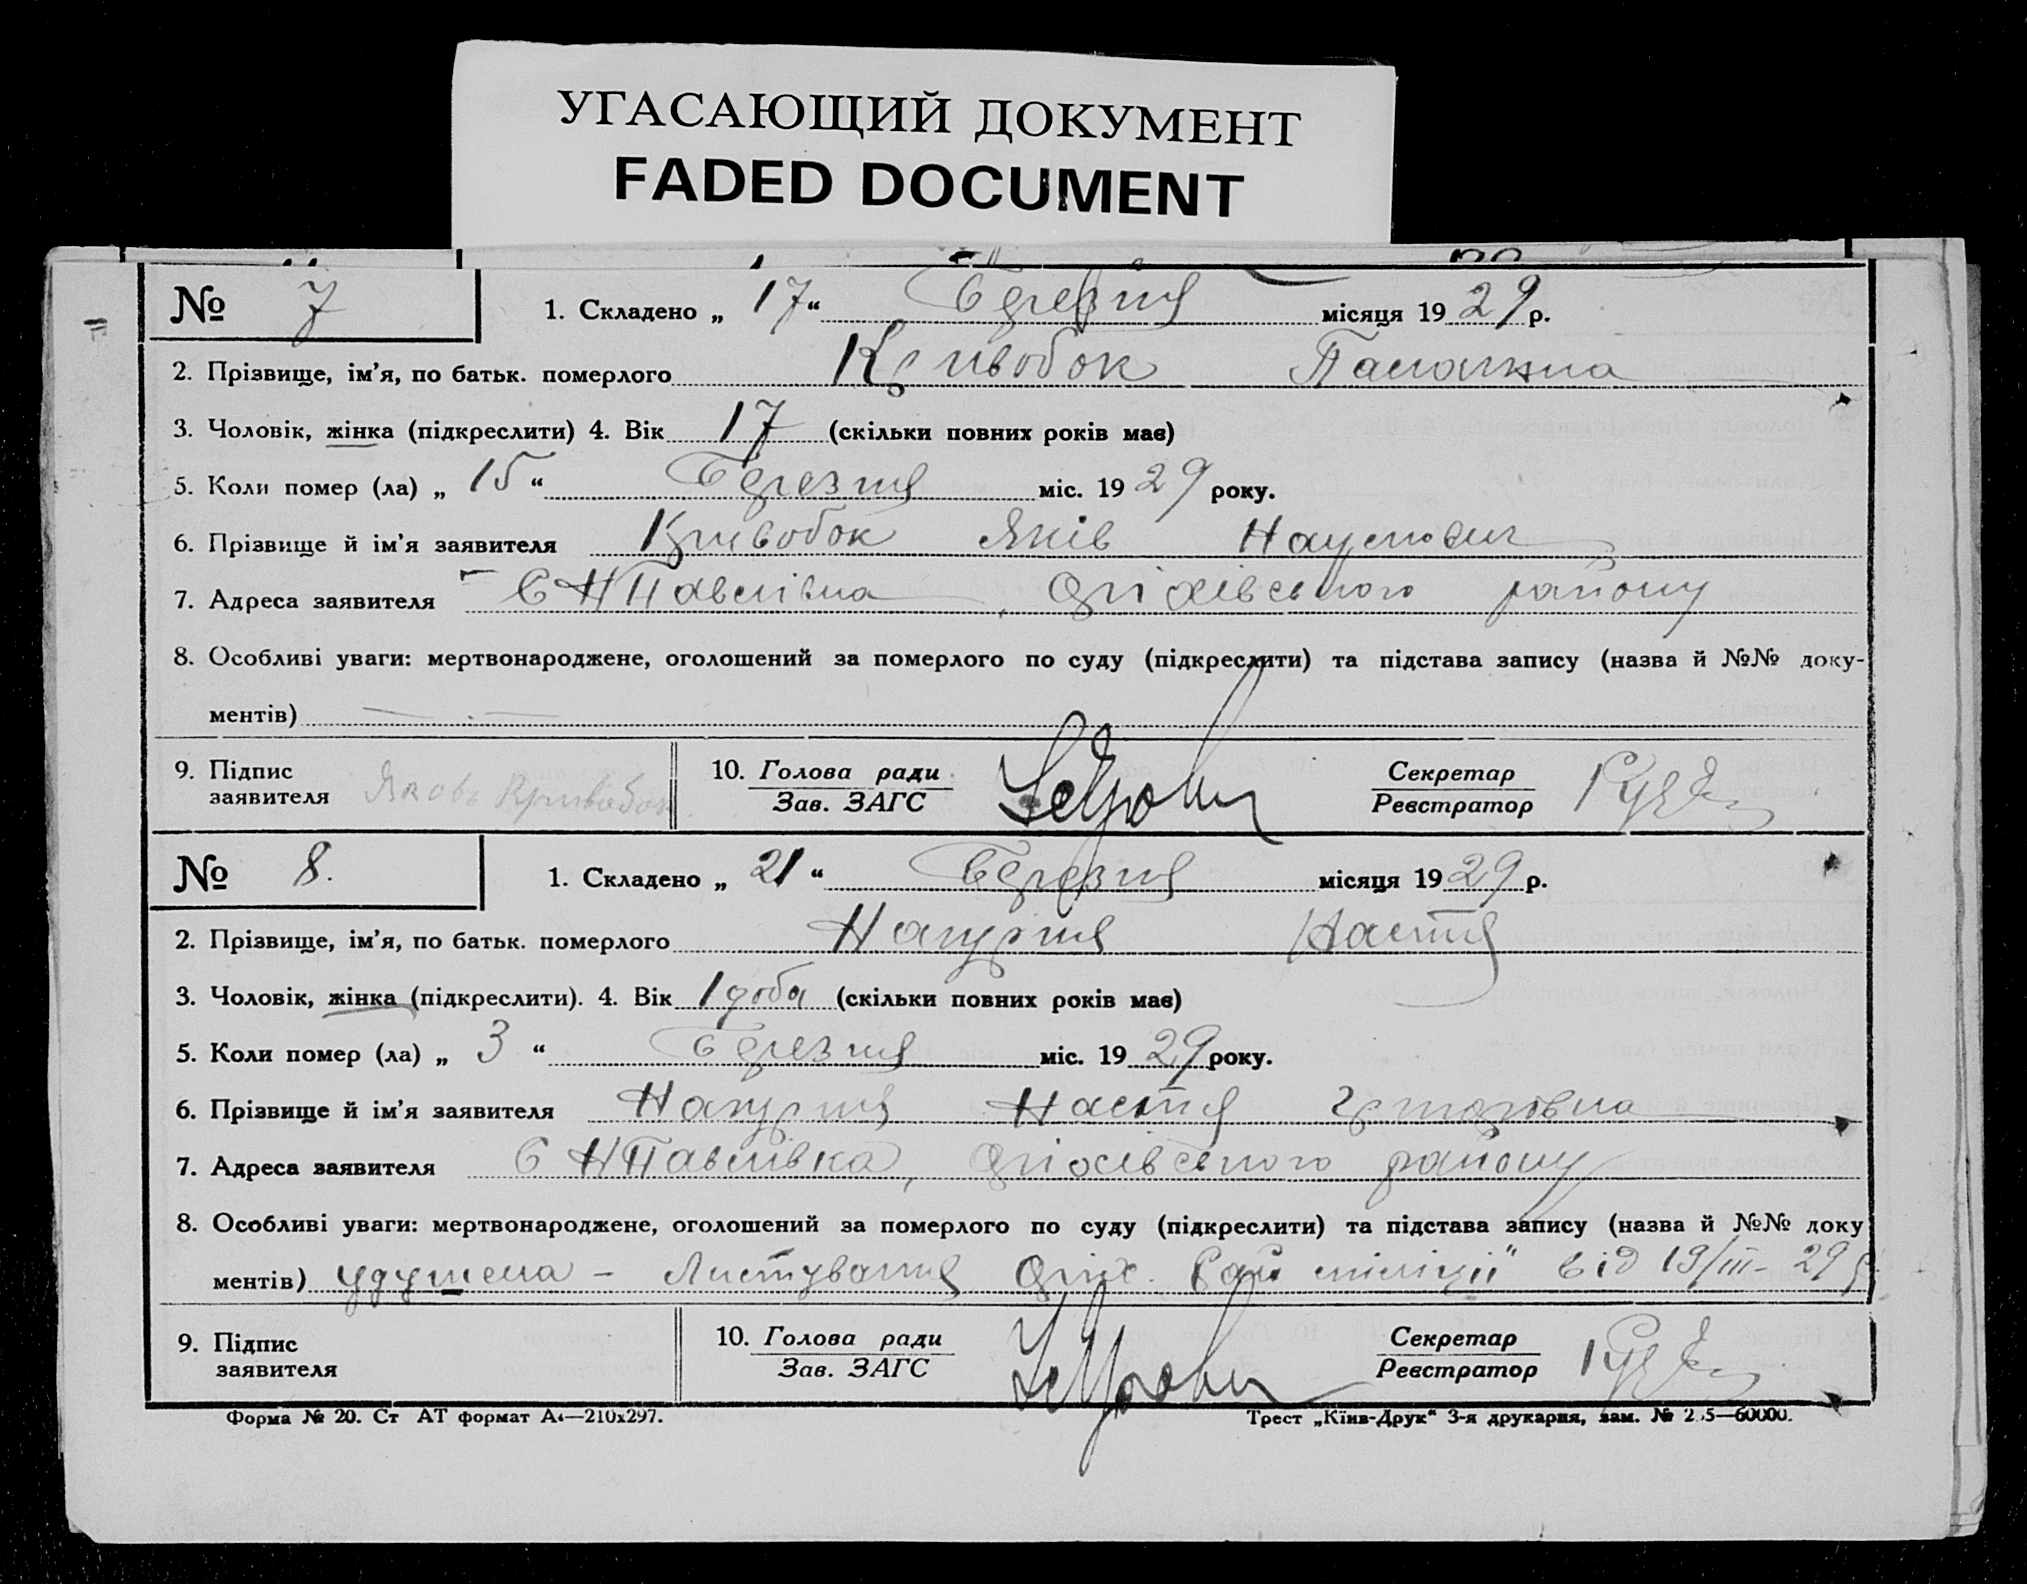 УГАСАЮЩИЙ ДОКУМЕНТ
FADED DOCUMENT
№ 7 1. Складено „ 17 “ Березня місяця 19 29 р.
2. Прізвище, ім’я, по батьк. померлого Кривобок
3. Чоловік, жінка (підкреслити) 4. Вік 17 (скільки повних років має)
5. Коли помер (ла) „ 15 “ Березня міс. 19 29 року.
6. Прізвище й ім’я заявителя Кривобок Яків Наумович
7. Адреса заявителя С Н Павлівка, Оріхівського району
8. Особливі уваги: мертвонароджене, оголошений за померлого по суду (підкреслити) та підстава запису (назва й №№ доку-
ментів) — . —
9. Підпис заявителя Яковъ Кривобок 10. Голова ради Секретар
Зав. ЗАГС Реєстратор
№ 8. 1. Складено „ 21 “ Березня місяця 19 29 р.
2. Прізвище, ім’я, по батьк. померлого Нагурня Настя
3. Чоловік, жінка (підкреслити). 4. Вік 1 доба (скільки повних років має)
5. Коли помер (ла) „ 3 “ Березня міс. 19 29 року.
6. Прізвище й ім’я заявителя Нагурня Настя
7. Адреса заявителя С Н Павлівка, Оріхівського району
8. Особливі уваги: мертвонароджене, оголошений за померлого по суду (підкреслити) та підстава запису (назва й №№ доку
ментів) удушена – Листування Оріх. Рай міліції" від 19/III – 29 р
9. Підпис заявителя 10. Голова ради Секретар
Зав. ЗАГС Реєстратор
Форма № 20. Ст АТ формат А4—210х297. Трест „Київ-Друк“ 3-я друкарня, зам. №